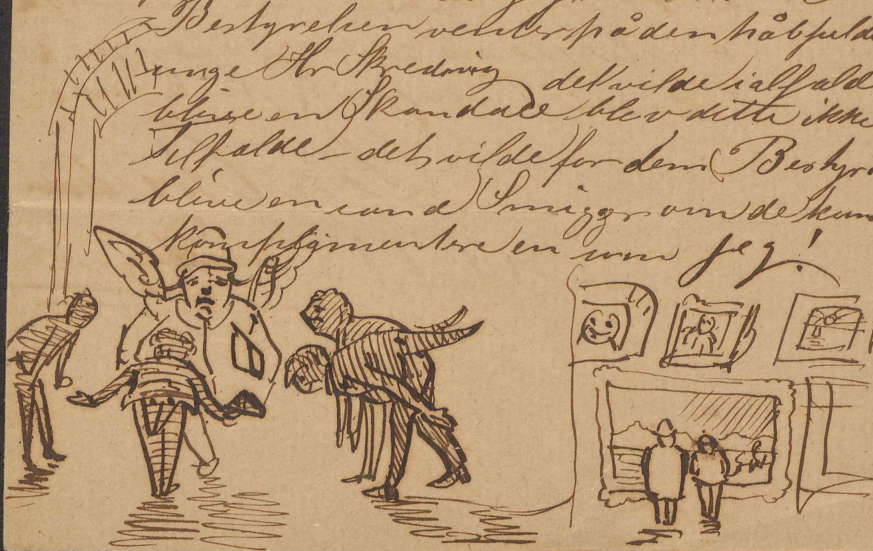 Bestyrelsen venter på den håbfulde
unge Hr Skredsvig det vilde ialfald
blive en Skandale blev dette ikke
Tilfælde – det vilde for dem Bestyr
blive en sand om de kun
komplimentere en som jeg!